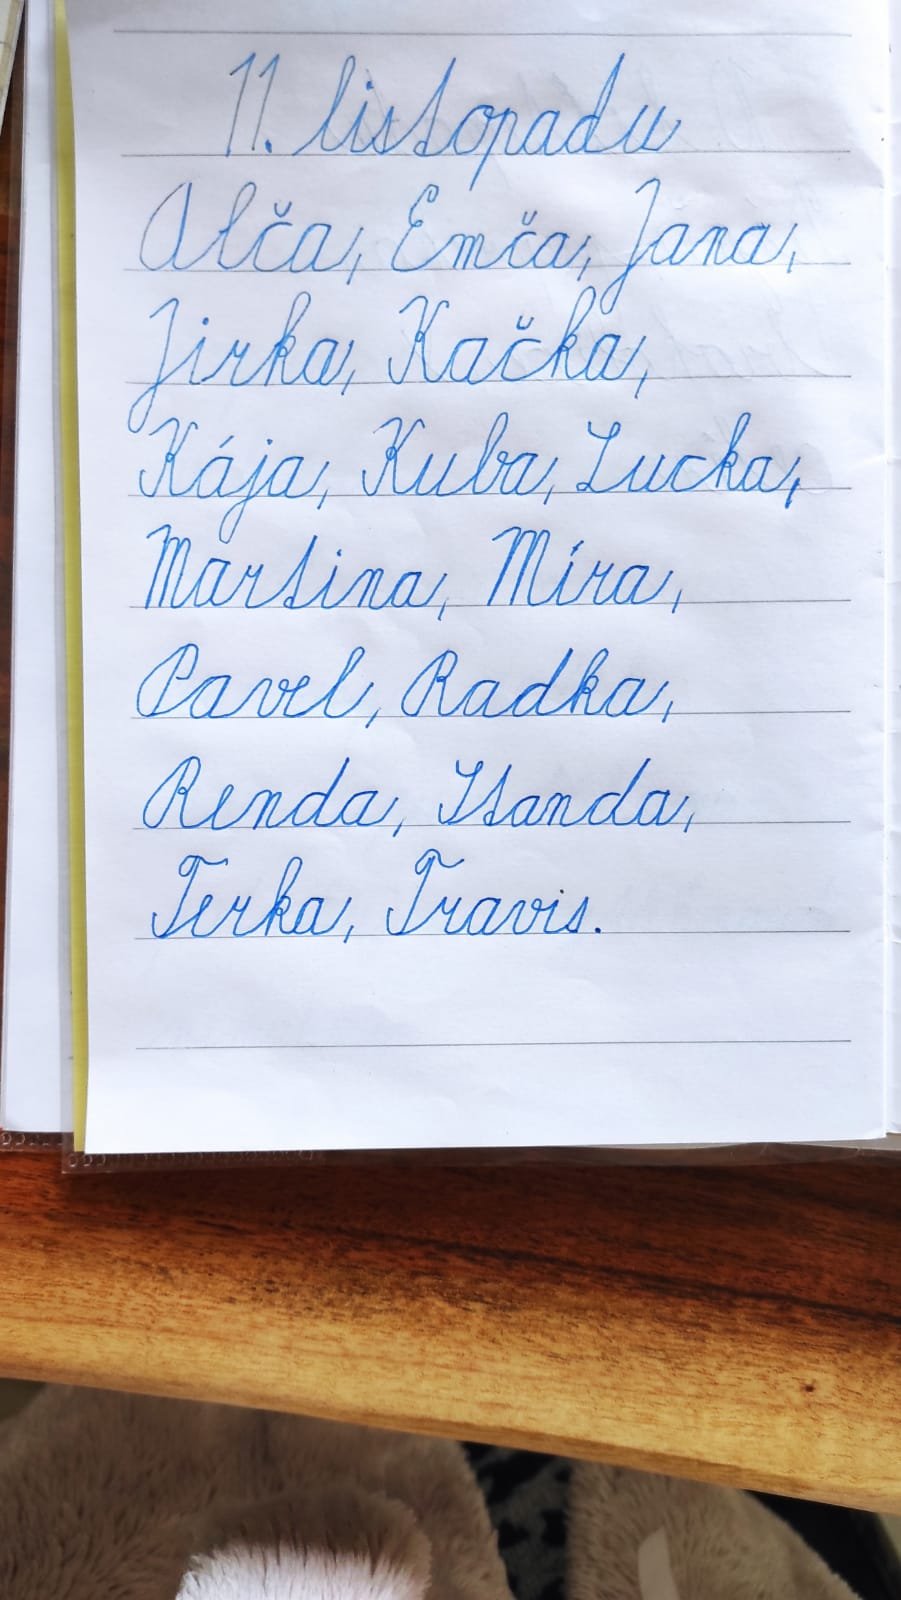 11. listopadu
Alča, Emča, Jana,
Jirka, Kačka,
Kája, Kuba, Lucka,
Martina, Míra,
Pavel, Radka,
Renda, Standa,
Terka, Travis.